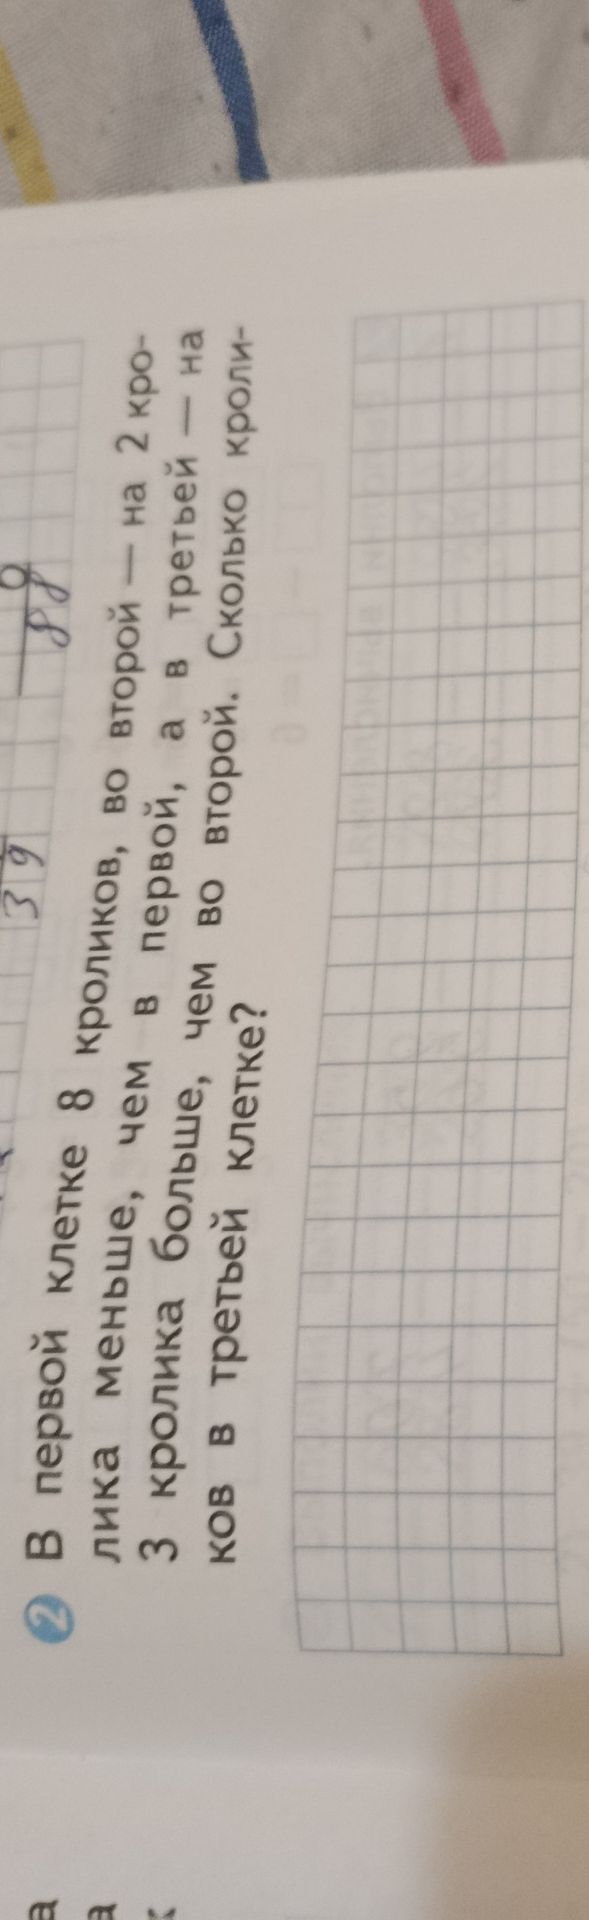 39
88
2 В первой клетке 8 кроликов, во второй — на 2 кро-
лика меньше, чем в первой, а в третьей — на
3 кролика больше, чем во второй. Сколько кроли-
ков в третьей клетке?
а
а